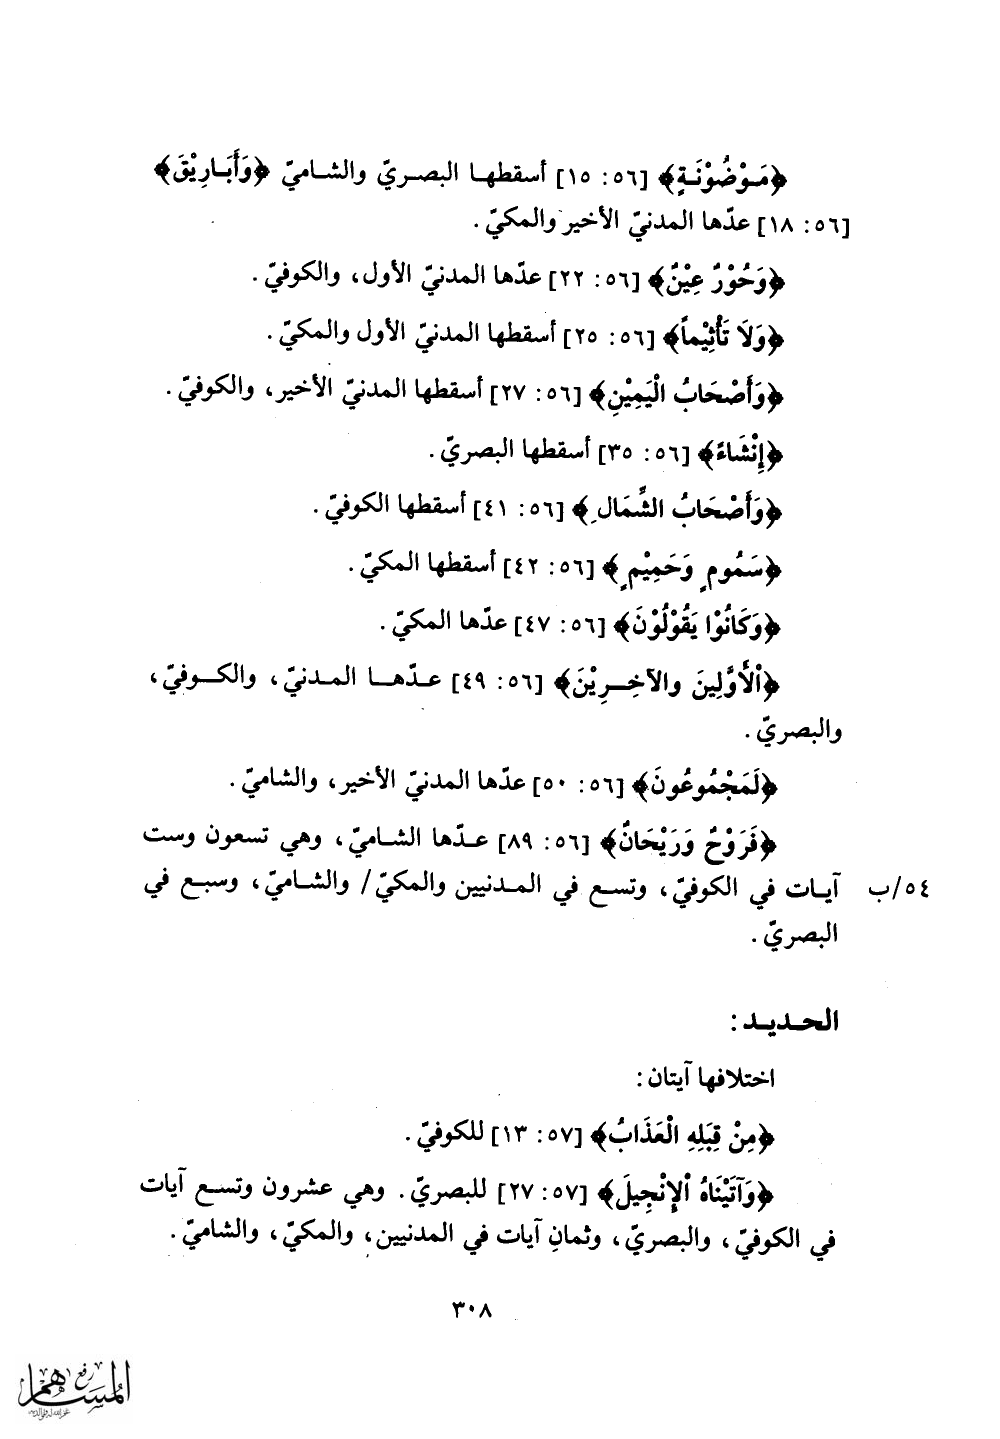 ﴿مَـوْضُوْنَـةٍ﴾ [٥٦: ١٥] أسقطهـا البصـريّ والشـاميّ ﴿وَأَبَـارِيْقَ﴾
[٥٦: ١٨] عدّها المدنيّ الأخير والمكيّ.
﴿وَحُوْرٌ عِيْنٌ﴾ [٥٦: ٢٢] عدّها المدنيّ الأول، والكوفيّ.
﴿وَلَا تَأْثِيْماً﴾ [٥٦: ٢٥] أسقطها المدنيّ الأول والمكيّ.
﴿وَأَصْحَابُ الْيَمِيْنِ﴾ [٥٦: ٢٧] أسقطها المدنيّ الأخير، والكوفيّ.
﴿إِنْشَاءً﴾ [٥٦: ٣٥] أسقطها البصريّ.
﴿وَأَصْحَابُ الشِّمَالِ﴾ [٥٦: ٤١] أسقطها الكوفيّ.
﴿سَمُومٍ وَحَمِيْمٍ﴾ [٥٦: ٤٢] أسقطها المكيّ.
﴿وَكَانُوْا يَقُوْلُوْنَ﴾ [٥٦: ٤٧] عدّها المكيّ.
﴿اْلأَوَّلِينَ والآخِـرِيْنَ﴾ [٥٦: ٤٩] عـدّهـا المـدنيّ، والكـوفيّ،
والبصريّ.
﴿لَمَجْمُوعُونَ﴾ [٥٦: ٥٠] عدّها المدنيّ الأخير، والشاميّ.
﴿فَرَوْحٌ وَرَيْحَانٌ﴾ [٥٦: ٨٩] عـدّها الشـاميّ، وهي تسعون وست
٥٤/ب آيـات في الكوفيّ، وتسـع في المـدنيين والمكيّ/ والشاميّ، وسبـع في
البصريّ.
الحـديـد:
اختلافها آيتان:
﴿مِنْ قِبَلِهِ الْعَذَابُ﴾ [٥٧: ١٣] للكوفيّ.
﴿وَآتَيْنَاهُ اْلإِنْجِيلَ﴾ [٥٧: ٢٧] للبصريّ. وهي عشرون وتسـع آيات
في الكوفيّ، والبصريّ، وثمانِ آيات في المدنيين، والمكيّ، والشاميّ.
٣٠٨
رفع
المساهم